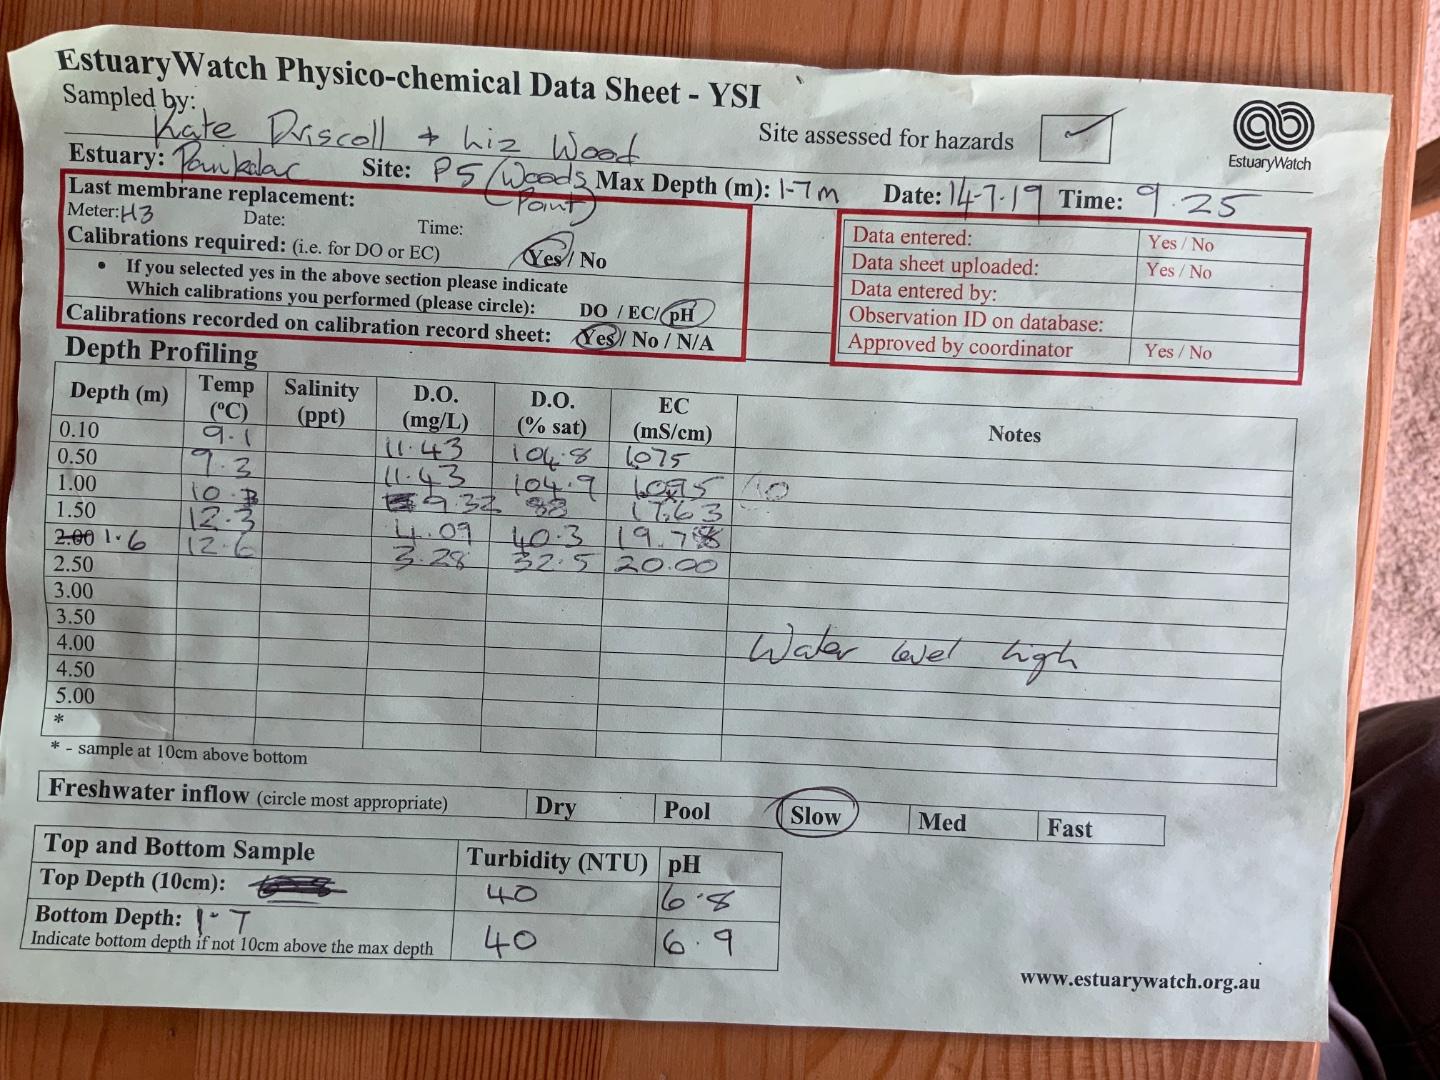 EstuaryWatch Physico-chemical Data Sheet - YSI
Sampled by: Kate Driscoll + Liz Wood
Site assessed for hazards ✓
EstuaryWatch
Estuary: Painkalac Site: P5 (Woods Point) Max Depth (m): 1-7m Date: 14-7-19 Time: 9.25
Last membrane replacement:
Meter: H3 Date: Time:
Calibrations required: (i.e. for DO or EC) Yes / No
• If you selected yes in the above section please indicate
Which calibrations you performed (please circle): DO / EC/ pH
Calibrations recorded on calibration record sheet: Yes / No / N/A
Data entered: Yes / No
Data sheet uploaded: Yes / No
Data entered by:
Observation ID on database:
Approved by coordinator Yes / No
Depth Profiling
Depth (m) Temp (ºC) Salinity (ppt) D.O. (mg/L) D.O. (% sat) EC (mS/cm) Notes
0.10 9.1 11.43 104.8 1075
0.50 9.3 11.43 104.9
1.00 9.32 88 17.63
1.50 12.3 4.09 40.3 19.78
2.00 1.6 12.6 3.28 32.5 20.00
2.50
3.00
3.50
4.00 Water level high
4.50
5.00
*
* - sample at 10cm above bottom
Freshwater inflow (circle most appropriate) Dry Pool Slow Med Fast
Top and Bottom Sample Turbidity (NTU) pH
Top Depth (10cm): 40 6.8
Bottom Depth: 1.7 40 6.9
Indicate bottom depth if not 10cm above the max depth
www.estuarywatch.org.au